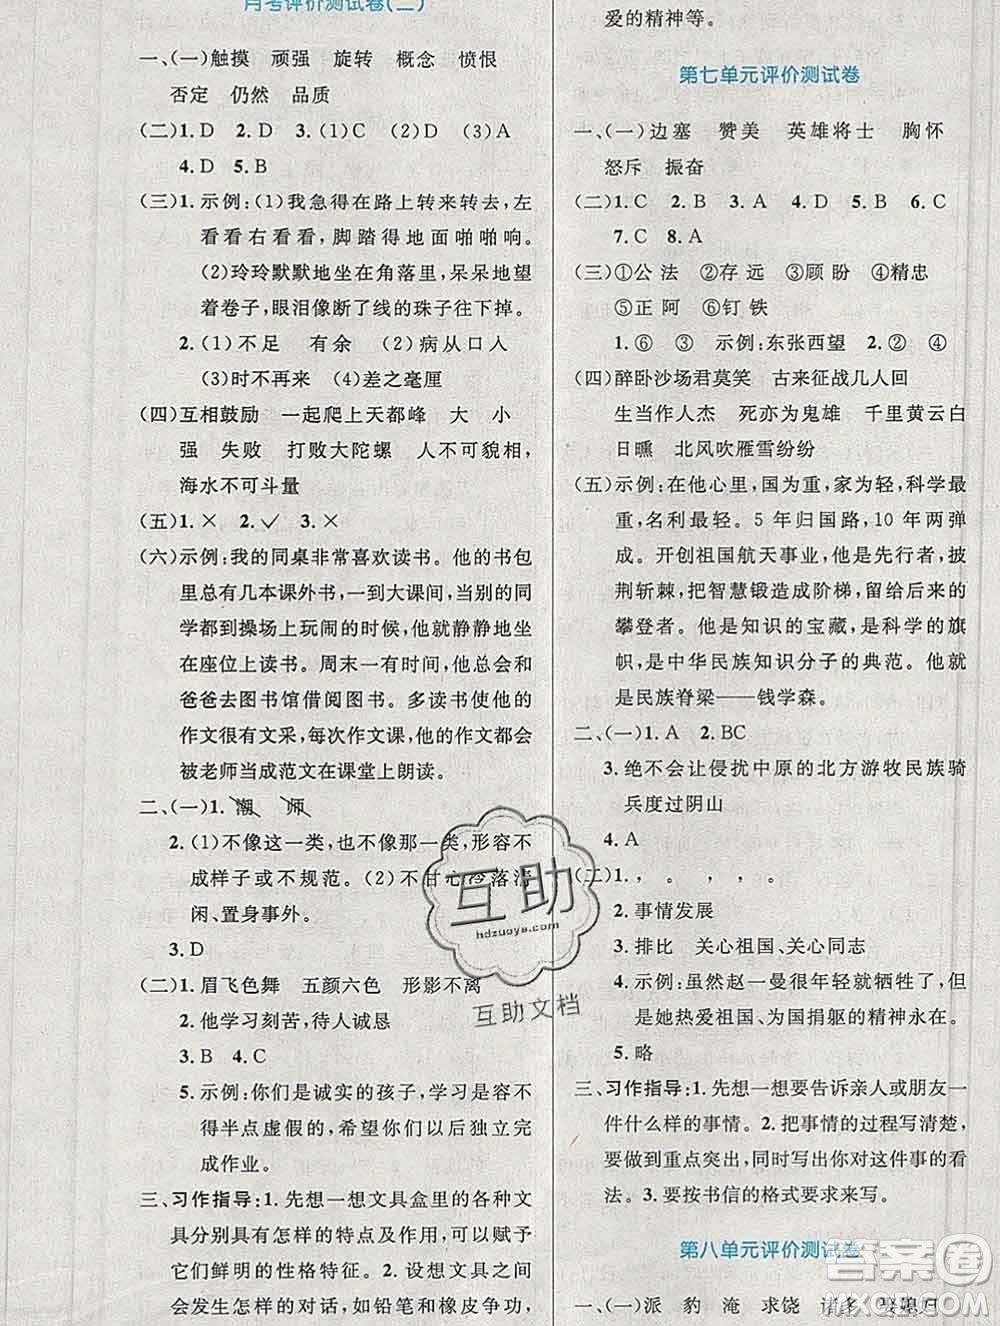 月考评价测试卷(二)
一、(一)触摸 顽强 旋转 概念 愤恨
否定 仍然 品质
(二)1. D 2. D 3. (1)C (2)D (3)A
4. D 5. B
(三)1. 示例:(1)我急得在路上转来转去,左
看看右看看,脚踏得地面啪啪响。
(2)玲玲默默地坐在角落里,呆呆地望
着卷子,眼泪像断了线的珠子往下掉。
2. (1)不足 有余 (2)病从口入
(3)时不再来 (4)差之毫厘
(四)互相鼓励 一起爬上天都峰 大 小
强 失败 打败大陀螺 人不可貌相,
海水不可斗量
(五)1. × 2. ✓ 3. ×
(六)示例:我的同桌非常喜欢读书。他的书包
里总有几本课外书,一到大课间,别的同
学都到操场上玩闹的时候,他就静静地坐
在座位上读书。周末一有时间,他总会和
爸爸去图书馆借阅图书。多读书使他的
作文很有文采,每次作文课,他的作文都会
被老师当成范文在课堂上朗读。
二、(一)1. 潮 师
2. (1)不像这一类,也不像那一类,形容不
成样子或不规范。(2)不甘心冷落清
闲、置身事外。
3. D
(二)1. 眉飞色舞 五颜六色 形影不离
2. 他学习刻苦,待人诚恳
3. B 4. C
5. 示例:你们是诚实的孩子,学习是容
不得半点虚假的,希望你们以后独立完
成作业。
三、习作指导:1. 先想一想文具盒里的各种文
具分别具有怎样的特点及作用,可以赋予
它们鲜明的性格特征。2. 设想文具之间
会发生怎样的故事,如铅笔和橡皮争功,
爱的精神等。
第七单元评价测试卷
一、(一)边塞 赞美 英雄将士 胸怀
怒斥 振奋
(二)1. C 2. B 3. A 4. D 5. D 6. C
7. C 8. A
(三)①公 法 ②存 远 ③顾 盼 ④精忠
⑤正 阿 ⑥钉 铁
1. ⑥ ③ 示例:东张西望 2. ② ④
(四)醉卧沙场君莫笑 古来征战几人回
生当作人杰 死亦为鬼雄 千里黄云白
日曛 北风吹雁雪纷纷
(五)示例:在他心里,国为重,家为轻,科学最
重,名利最轻。5 年归国路,10 年两弹
成。开创祖国航天事业,他是先行者,披
荆斩棘,把智慧锻造成阶梯,留给后来的
攀登者。他是知识的宝藏,是科学的旗
帜,是中华民族知识分子的典范。他就
是民族脊梁——钱学森。
二、(一)1. A 2. BC
3. 绝不会让侵扰中原的北方游牧民族骑
兵度过阴山
4. A
(二)1. , 。 , , 。
2. 事情发展
3. 排比 关心祖国、关心同志
4. 示例:虽然赵一曼很年轻就牺牲了,但
是她热爱祖国、为国捐躯的精神永在。
5. 略
三、习作指导:1. 先想一想要告诉亲人或朋友一
件什么样的事情。2. 把事情的过程写清楚,
要做到重点突出,同时写出你对这件事的看
法。3. 要按书信的格式要求来写。
第八单元评价测试卷
一、(一)派 豹 淹 求饶 诸多
互助
hdzuoye.com
互助文档
答案圈